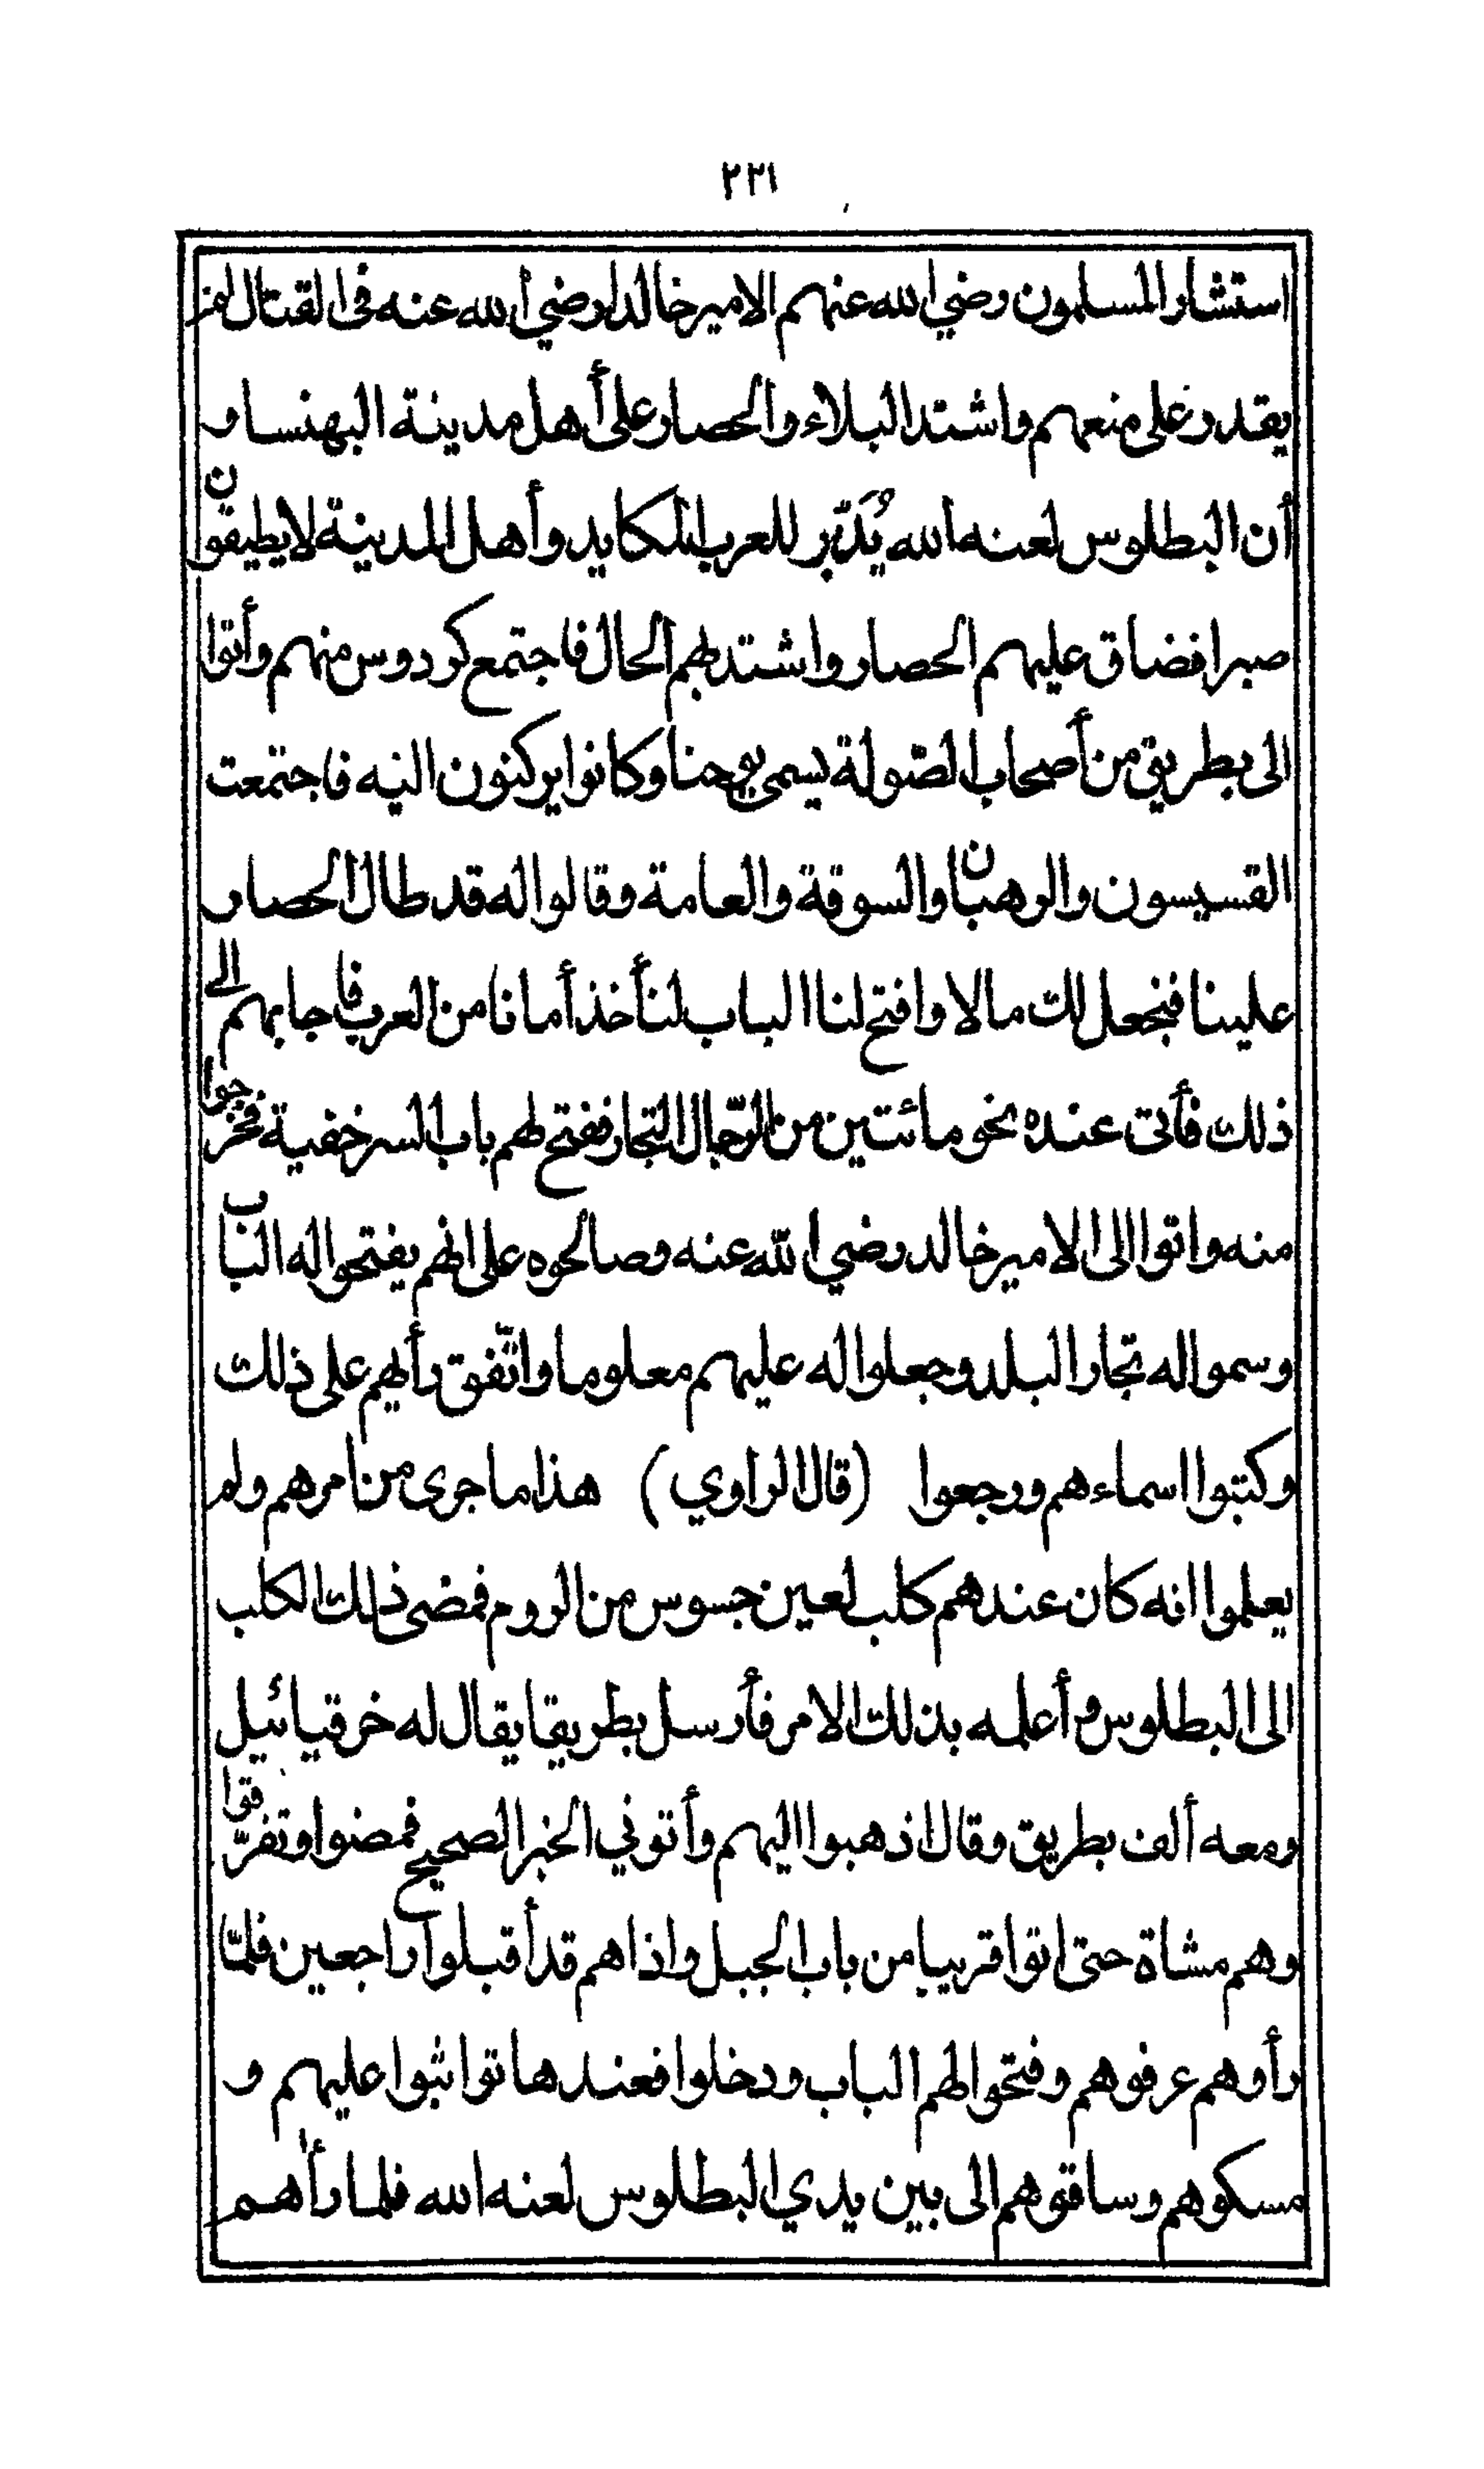 ٢٢١
استشار المسلمون رضي الله عنهم الامير خالدا رضي الله عنه في القتال فلم
يقدر على منعهم واشتد البلاء والحصار على أهل مدينة البهنسا و
أن البطلوس لعنه الله يُدَبّر للعرب المكايد وأهل المدينة لا يطيقون
صبرا فضاق عليهم الحصار واشتد بهم الحال فاجتمع كردوس منهم وأتوا
الى بطريق من أصحاب الصّولة يسمى يوحنا وكانوا يركنون اليه فاجتمعت
القسيسون والرهبان والسوقة والعامة وقالوا له قد طال الحصار
علينا فنجعل لك مالا وافتح لنا الباب لنأخذ أمانا من العرب فاجابهم الى
ذلك فأتى عنده نحو مائتين من الرّجال التجار ففتح لهم باب السر خفية فخرجوا
منه واتوا الى الامير خالد رضي الله عنه وصالحوه على انهم يفتحوا له الباب
وسموا له تجار البلد وجعلوا له عليهم معلوما واتّفق رأيهم على ذلك
وكتبوا اسماءهم ورجعوا (قال الراوي) هذا ما جرى من امرهم ولم
يعلموا انه كان عندهم كلب لعين جسوس من الروم فمضى ذلك الكلب
الى البطلوس وأعلمه بذلك الامر فأرسل بطريقا يقال له خرقيائيل
ومعه ألف بطريق وقال اذهبوا اليهم وأتوني الخبر الصحيح فمضوا وتفرّقوا
وهم مشاة حتى اتوا قريبا من باب الجبل واذا هم قد أقبلوا راجعين فلمّا
رأوهم عرفوهم وفتحوا لهم الباب ودخلوا فعندها تواثبوا عليهم و
مسكوهم وساقوهم الى بين يدي البطلوس لعنه الله فلما رأهم